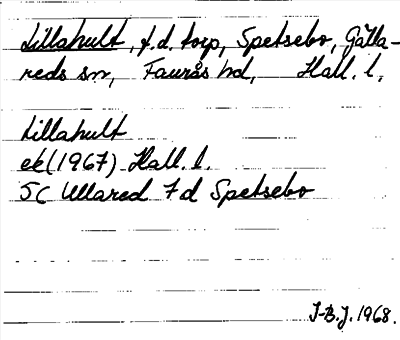 Lillahult, f.d. torp, Spetsebo, Gälla-
reds sn, Faurås hd, Hall. l.
Lillahult
ek(1967) Hall. l.
5C Ullared 7d Spetsebo
J-B.J. 1968.